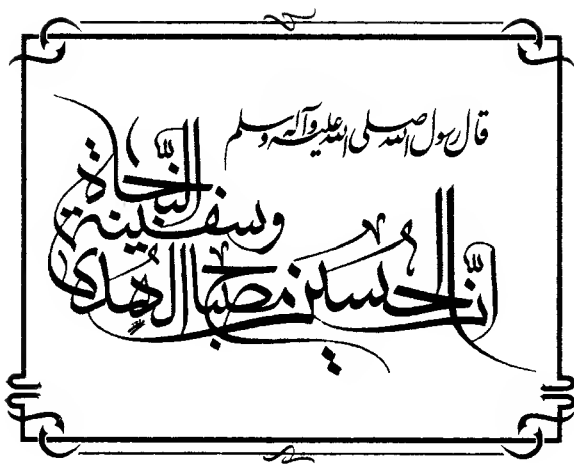 قال رسول الله صلى الله عليه وآله وسلم
إنَّ الحسين مصباح الهُدى
وسفينة النَّجاة